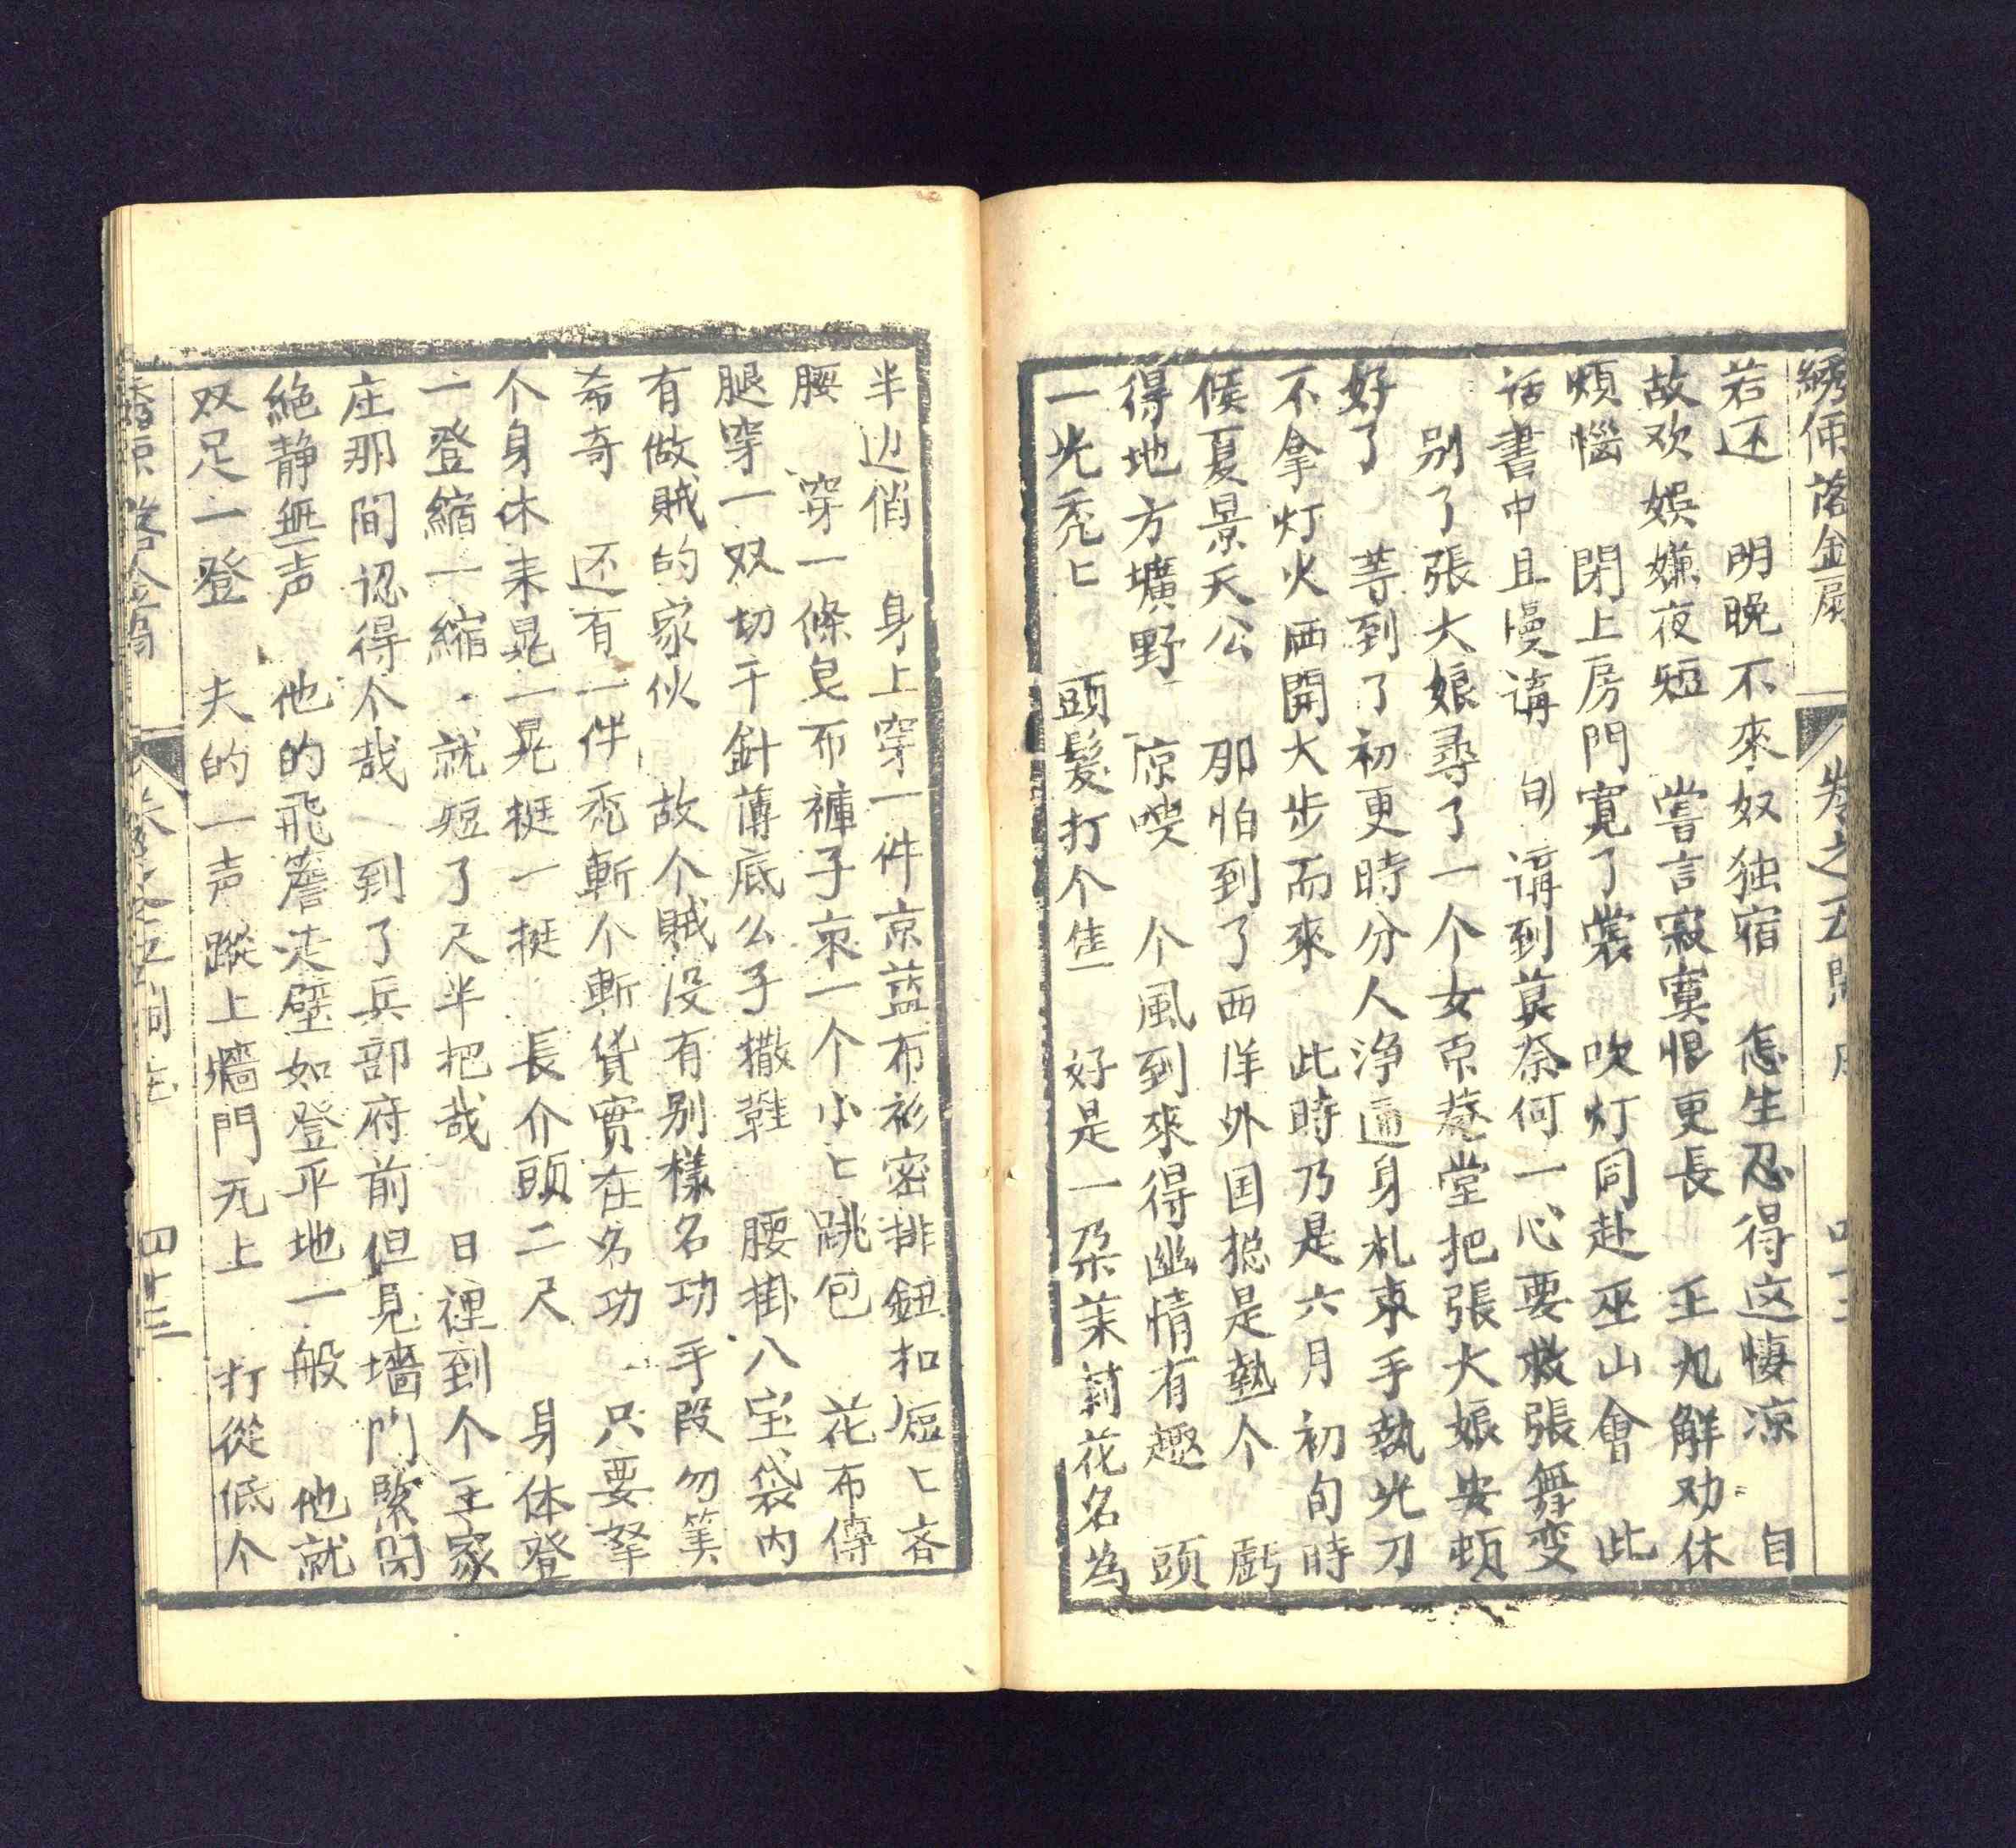 落金扇 卷之五
若还 明晚不來奴独宿 怎生忍得这悽凉 自
故欢娛嫌夜短 嘗言寂寞恨更長 王九解劝休
煩惱 閉上房門寬了裳 吹灯同赴巫山會 此
话書中且慢講 旬 講到莫奈何一心要救張舞变
别了張大娘尋了一个女京菴堂把張大娘安頓
好了 等到了初更時分人净逼身札束手執光刀
不拿灯火洒開大步而來 此時乃是六月初旬時
候夏景天公 那怕到了西洋外国捴是熱个 虧
得地方壙野 凉嗖 个風到來得幽情有趣 頭
一光禿匕 頭髮打个 好是一朶茉莉花名為
半边俏 身上穿一件京蓝布衫密排鈕扣 匕
腰 穿一條皂布褲子 一个小匕跳包 花布傳
腿穿一双切千針薄底公子撒鞋 腰掛八宝袋内
有做賊的家伙 故个賊没有别樣名功手段勿筭
希奇 还有一件禿斬个斬貨實在名功 只要拏
个身体来晃一晃挺一挺 長介頭二尺 身体登
一登縮一縮 就短了尺半把哉 日裡到个王家
庄那間認得个哉 到了兵部府前但見墻門緊閉
絶静無声 他的飛簷走壁如登平地一般 他就
双足一登 夫的一声蹤上墻門 上 打從低个
落金扇 四十三